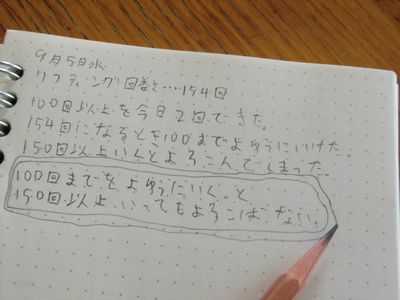 9月5日水
リフティング回数…154回
100回以上を今日2回できた。
154回になるとき100までよゆうにいけた。
150回以上いくとよろこんでしまった。
100回までをよゆうにいくと
150回以上いってもよろこばない。